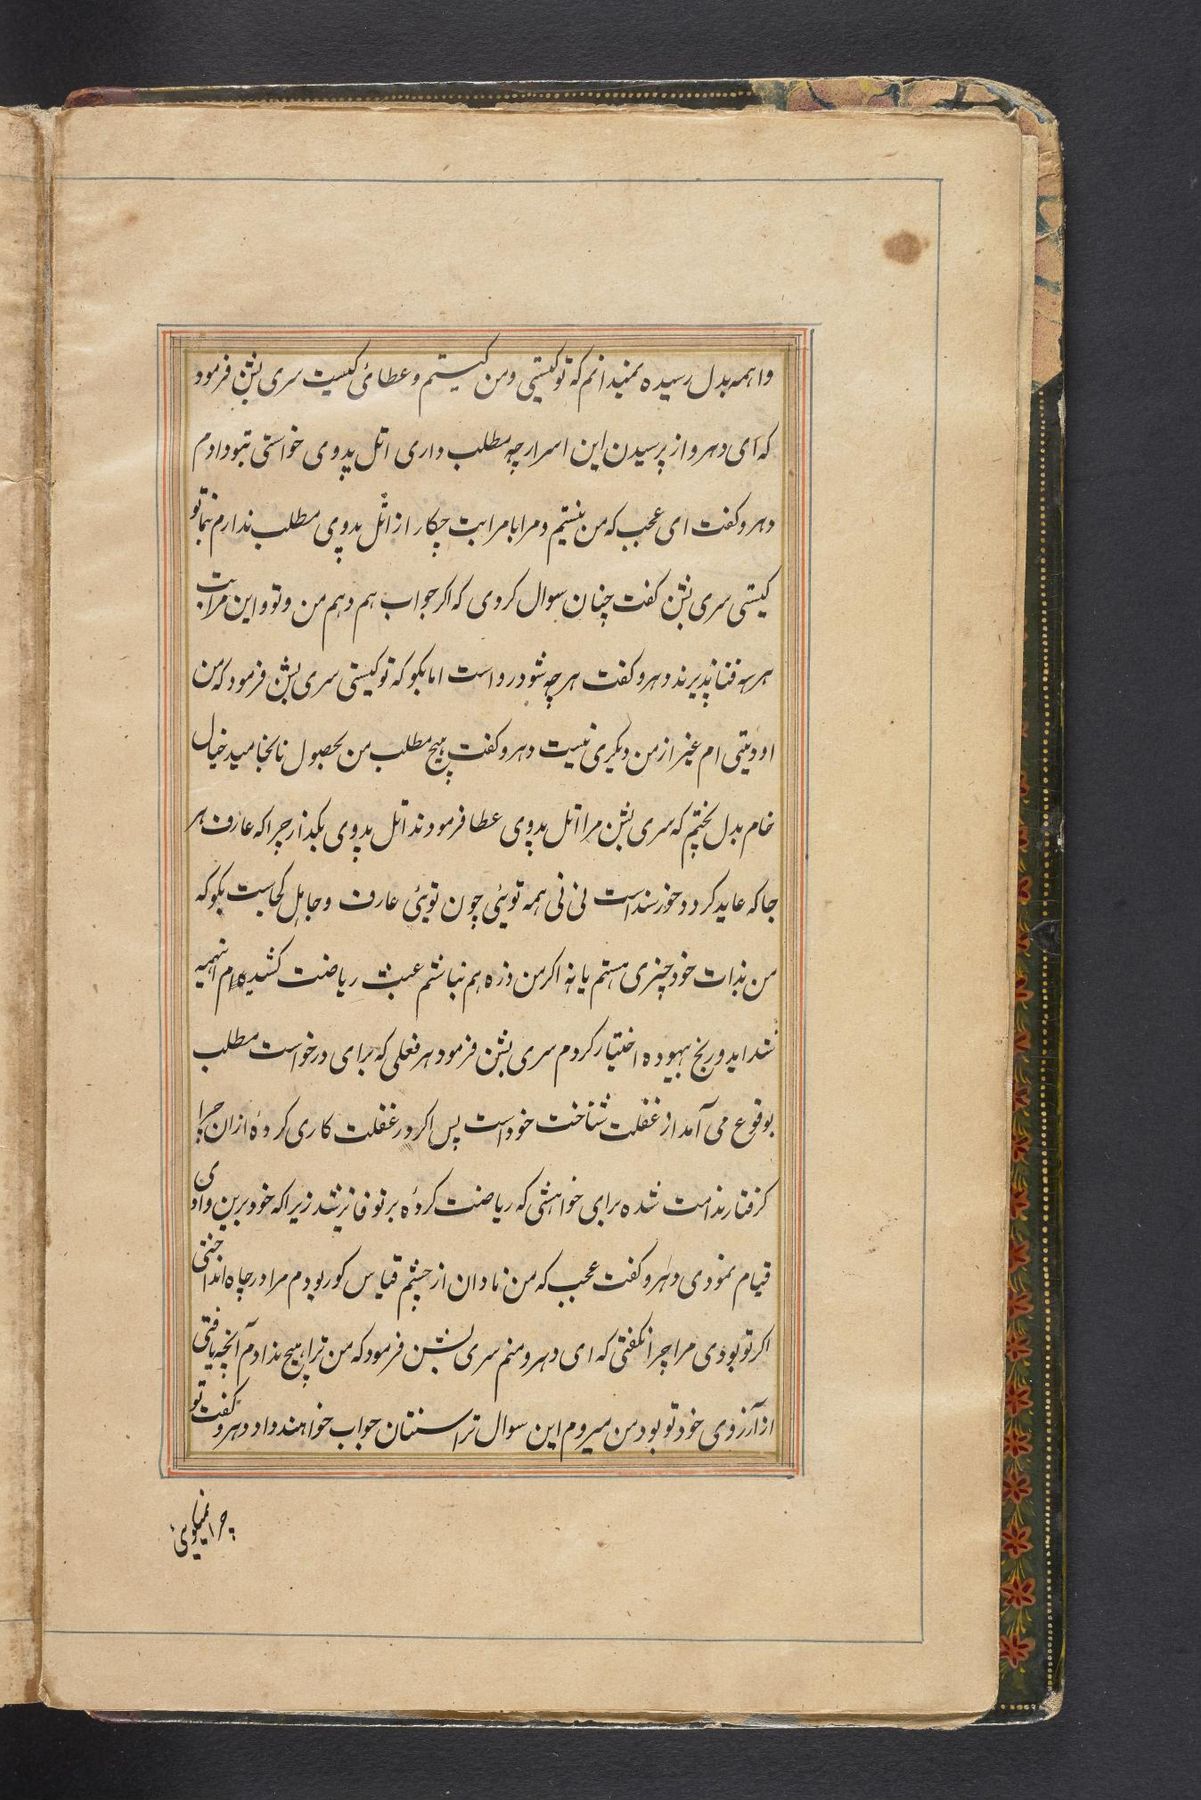 واهمه بدل رسیده نمیدانم که تو کیستی و من کیستم و عطائ کیست سری بشن فرمود
که ای دهرو از پرسیدن این اسرار چه مطلب داری اتل پدوی خواستی بتو دادم
دهرو کفت ای عجب که من نیستم و مرا با مراتب چکار از اتل پدوی مطلب ندارم بنما تو
کیستی سری بشن کفت چنان سوال کردی که اکر جواب هم دهم من و تو و این مراتب
هر سه فنا پذیرند دهرو کفت هر چه شود رواست اما بکو که تو کیستی سری بشن فرمود که من
ادویتی ام غیر از من دیکری نیست دهرو کفت هیچ مطلب من بحصول نا نجامید خیال
خام بدل پختم که سری بشن مرا اتل پدوی عطا فرمودند اتل پدوی بکذار چرا که عارف هر
جا که عاید کردد خورسند است نی نی همه توئی چون توئی عارف و جاهل کجاست بکو که
من بذات خود چیزی هستم یا نه اکر من ذره هم نباشم عبث ریاضت کشیده ام اینهمه
شداید و رنج بیهوده اختیار کردم سری بشن فرمود هر فعلی که برای درخواست مطلب
بوقوع می آمد از غفلت شناخت خود است پس اکر در غفلت کاری کردهٔ ازان چرا
کرفتار ندامت شده برای خواهشی که ریاضت کردهٔ بر تو فایز شد زیرا که خود برین وادی
قیام نمودی دهرو کفت عجب که من نادان از چشم قیاس کور بودم مرا در چاه انداختی
اکر تو بودی مرا چرا نکفتی که ای دهرو منم سری بشن فرمود که من ترا هیچ ندادم آنچه یافتی
از آرزوی خود تو بود من میروم این سوال ترا سنتان جواب خواهند داد دهرو کفت تو
چرا نمیکوئی